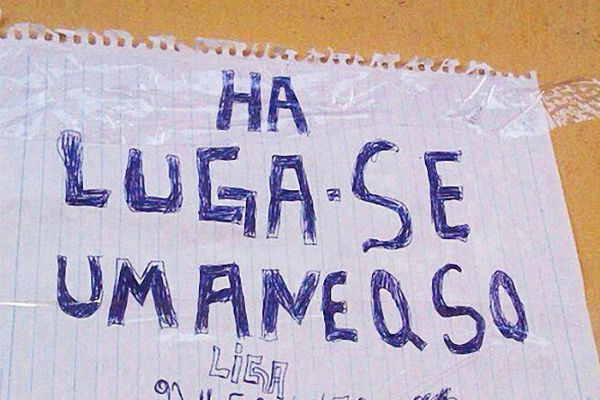 HA
LUGA-SE
UM ANEQSO
LiGA